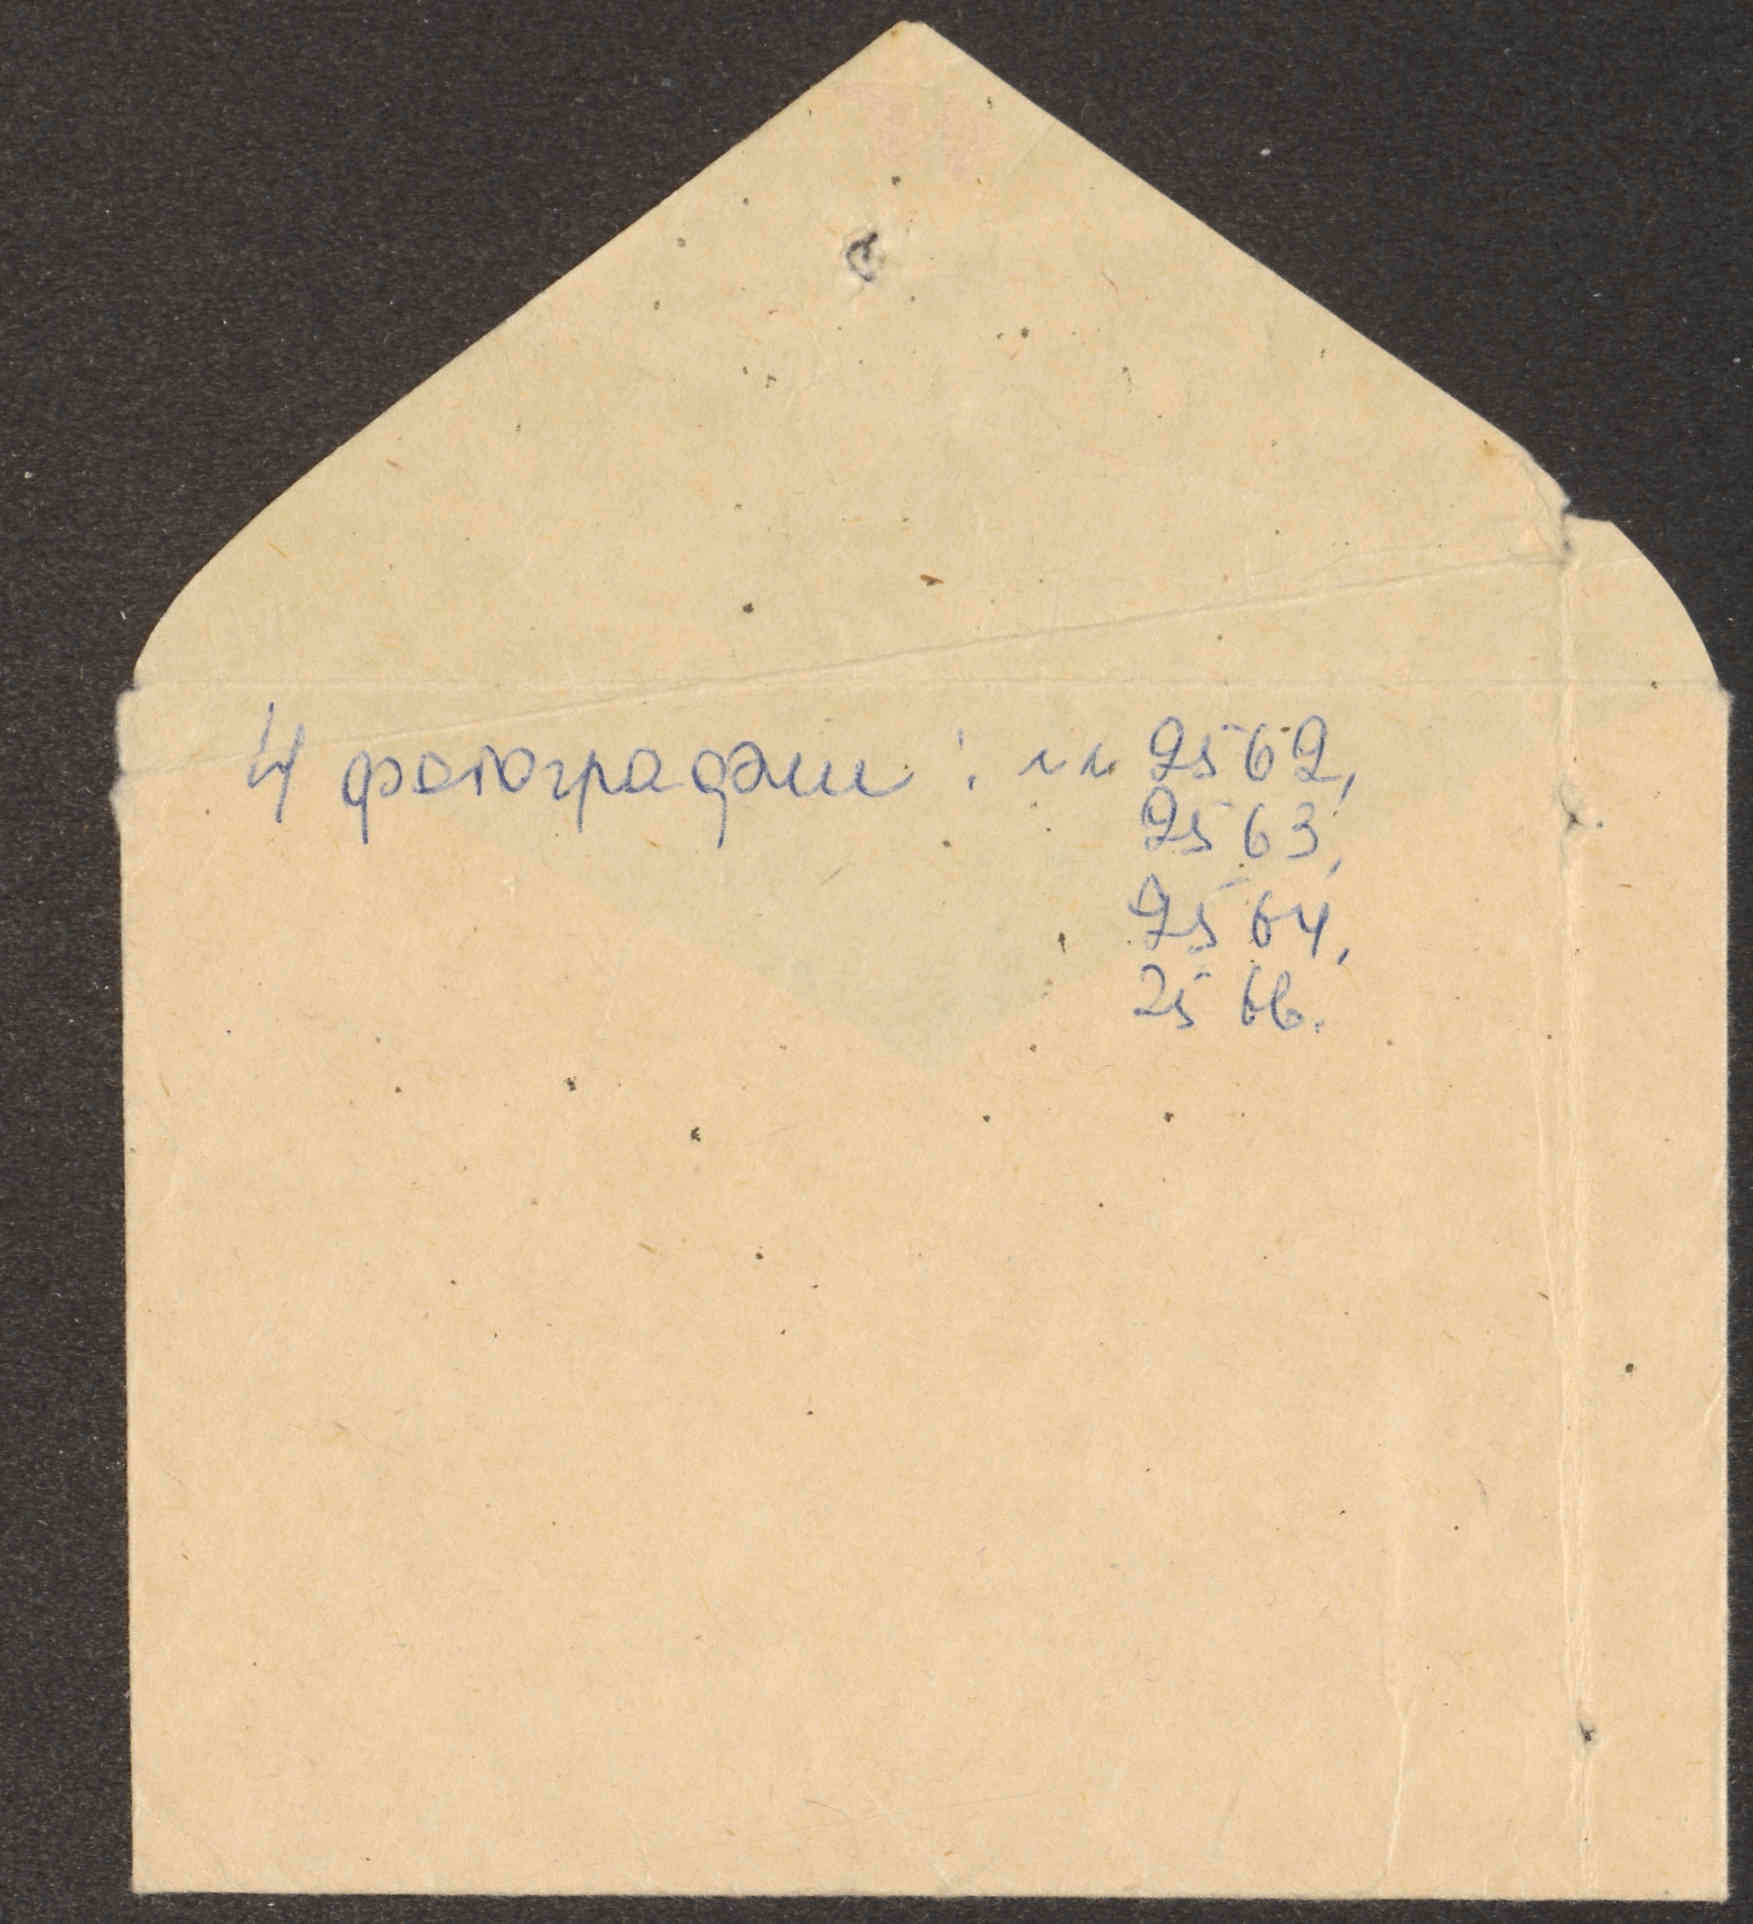 4 фотографии : лл 2562,
2563,
2564,
2566.